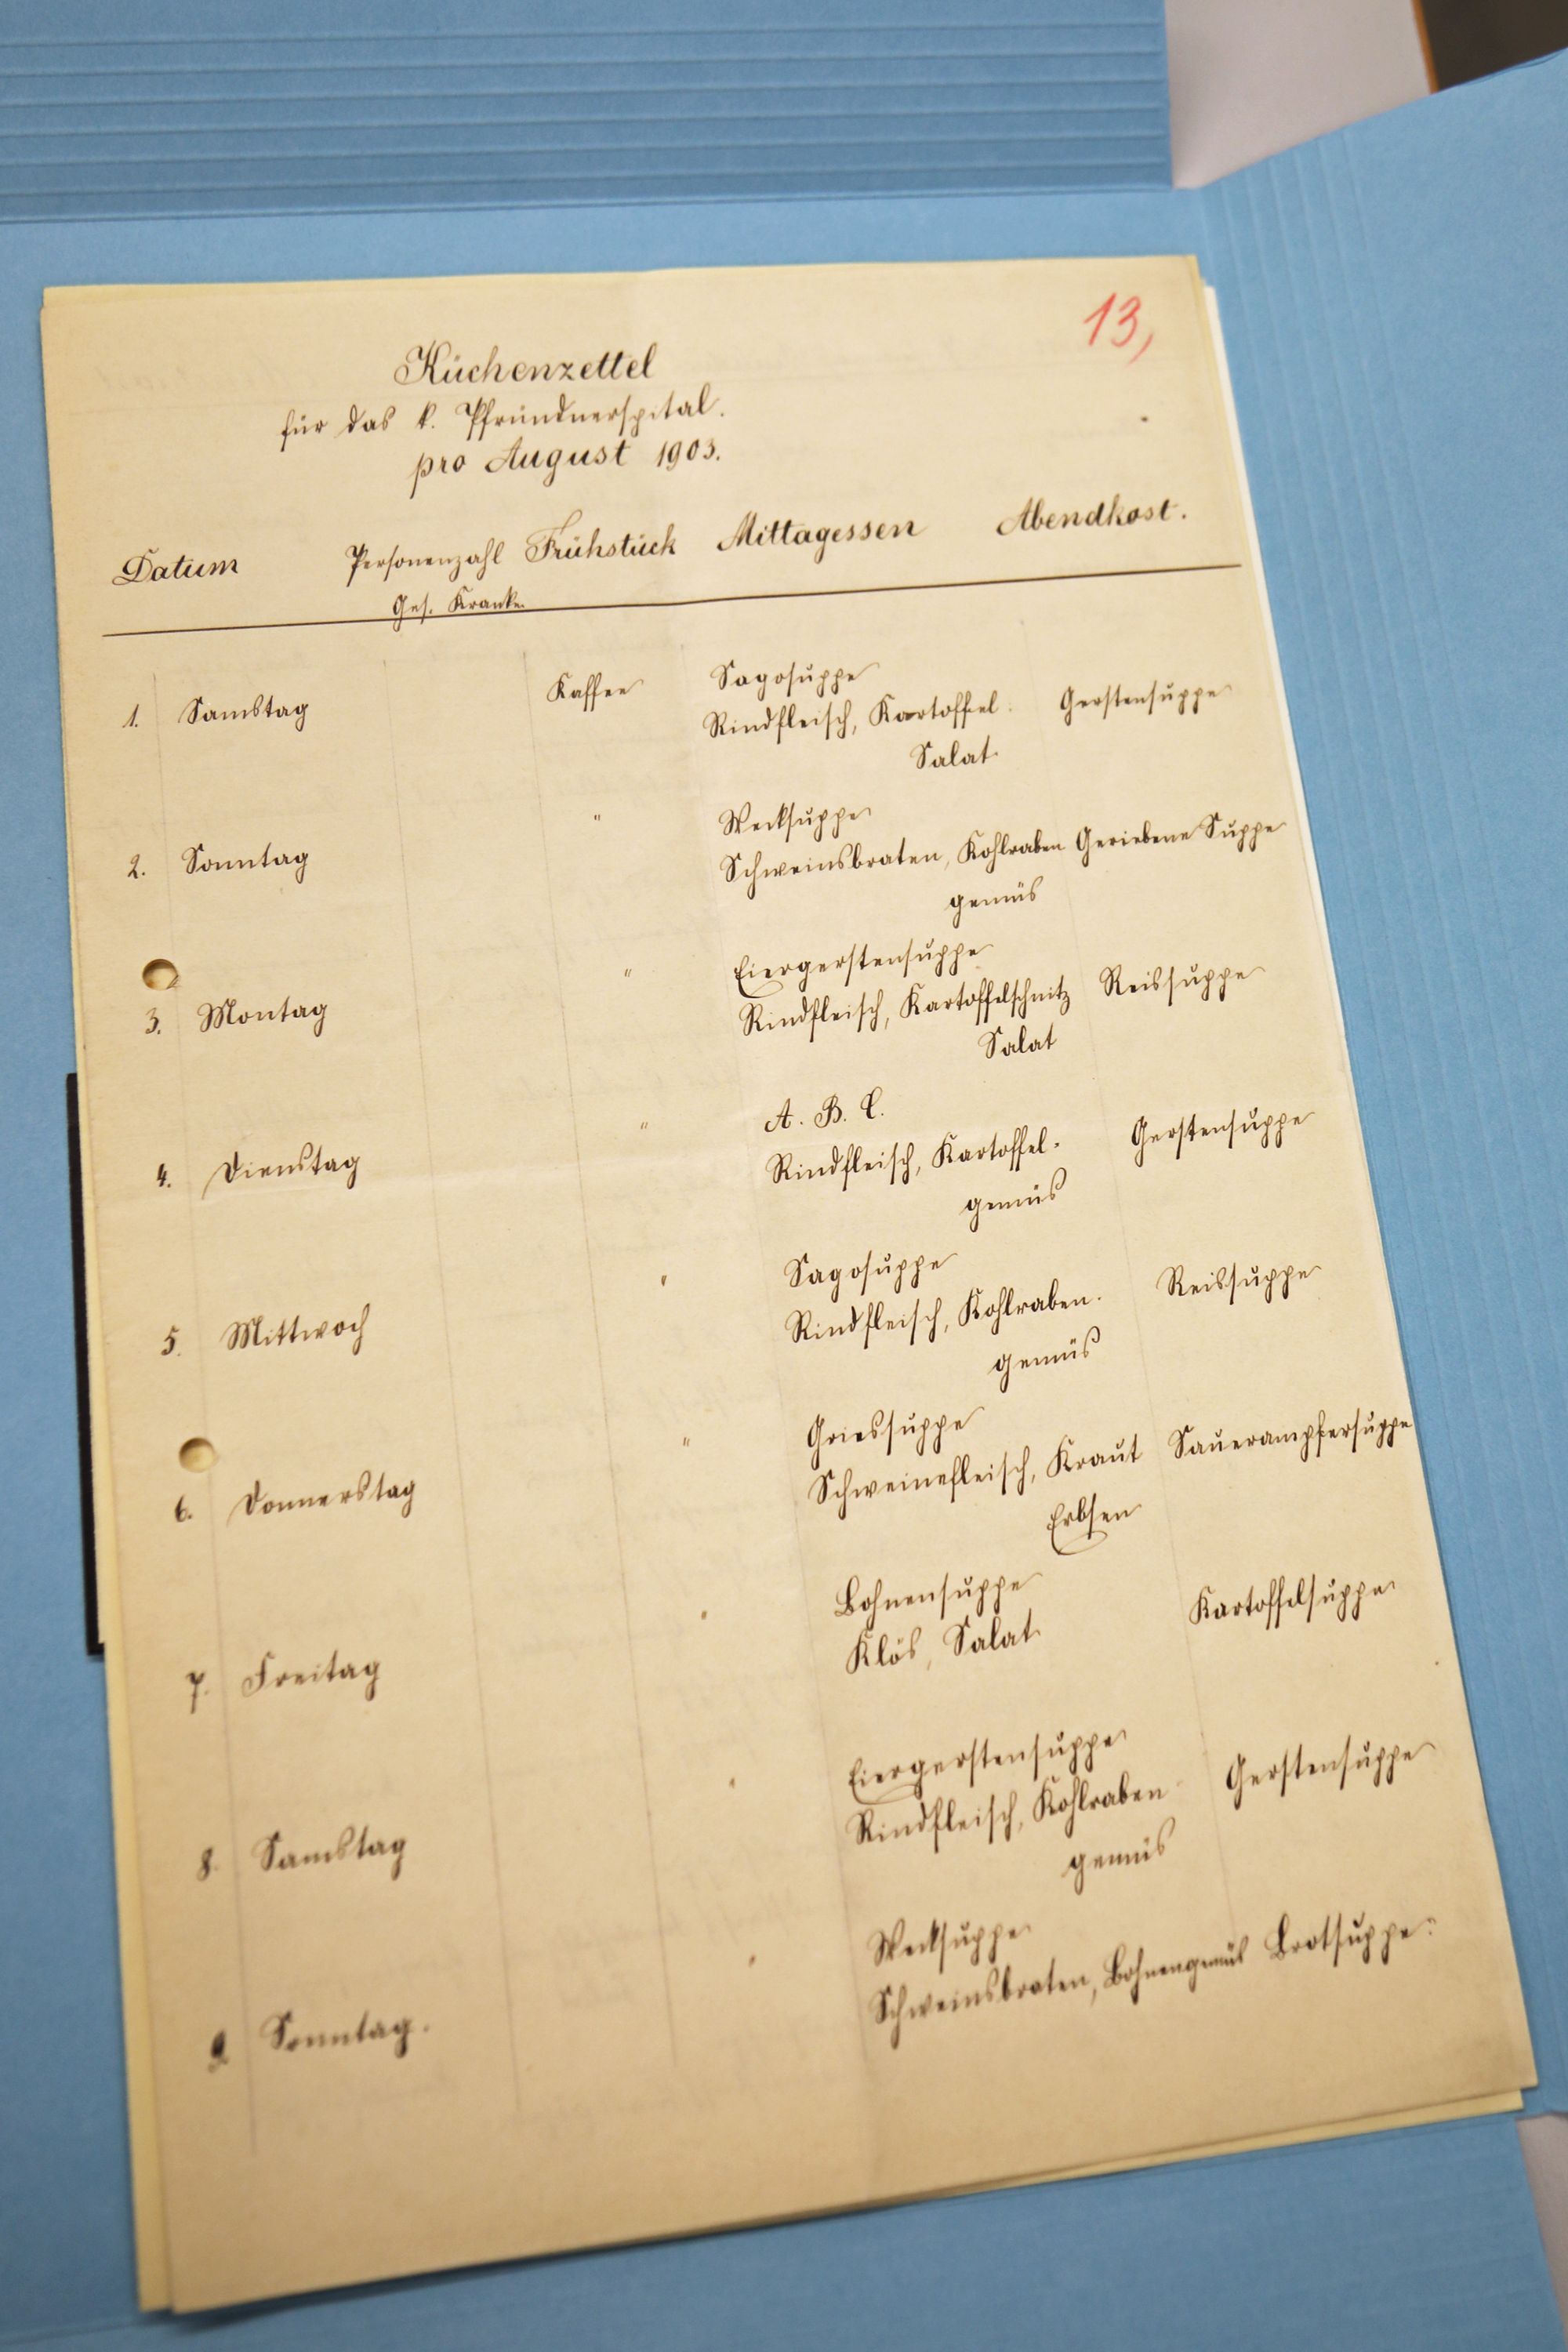 13,
Küchenzettel
für das k. Pfründnerspital.
pro August 1903.
Datum Personenzahl Frühstück Mittagessen Abendkost.
Ges. Kranke.
Sagosuppe
1. Samstag Kaffee Rindfleisch, Kartoffel. Gerstensuppe
Salat
" Wecksuppe
2. Sonntag Schweinsbraten, Kohlraben Geriebene Suppe
gemüs
" Eiergerstensuppe
3. Montag Rindfleisch, Kartoffelschnitz Reissuppe
Salat
" A. B. C.
4. Dienstag Rindfleisch, Kartoffel. Gerstensuppe
gemüs
" Sagosuppe
5. Mittwoch Rindfleisch, Kohlraben. Reissuppe
gemüs
" Griessuppe
6. Donnerstag Schweinefleisch, Kraut Sauerampfersuppe
Erbsen
" Bohnensuppe
7. Freitag Klös, Salat Kartoffelsuppe
" Eiergerstensuppe
8. Samstag Rindfleisch, Kohlraben Gerstensuppe
gemüs
" Wecksuppe
9. Sonntag. Schweinsbraten, Bohnengemüs Brotsuppe.